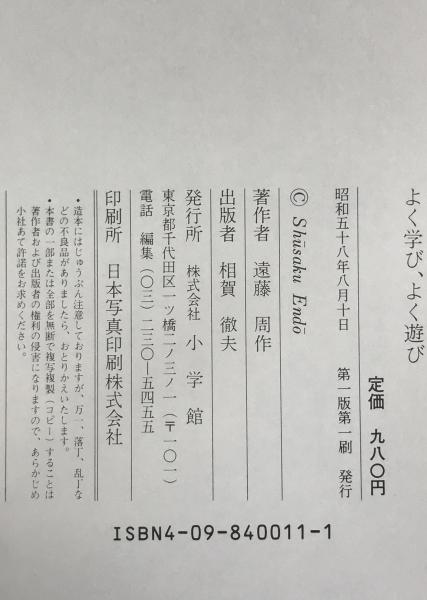 よく学び、よく遊び
定価 九八〇円
昭和五十八年八月十日 第一版第一刷 発行
© Shūsaku Endō
著作者 遠藤 周作
出版者 相賀 徹夫
発行所 株式会社 小学館
東京都千代田区一ツ橋二ノ三ノ一(〒一〇一)
電話 編集(〇三)二三〇―五四五五
印刷所 日本写真印刷株式会社
・造本にはじゅうぶん注意しておりますが、万一、落丁、乱丁な
どの不良品がありましたら、おとりかえいたします。
・本書の一部または全部を無断で複写複製(コピー)することは
著作者および出版者の権利の侵害になりますので、あらかじめ
小社あて許諾をお求めください。
ISBN4-09-840011-1